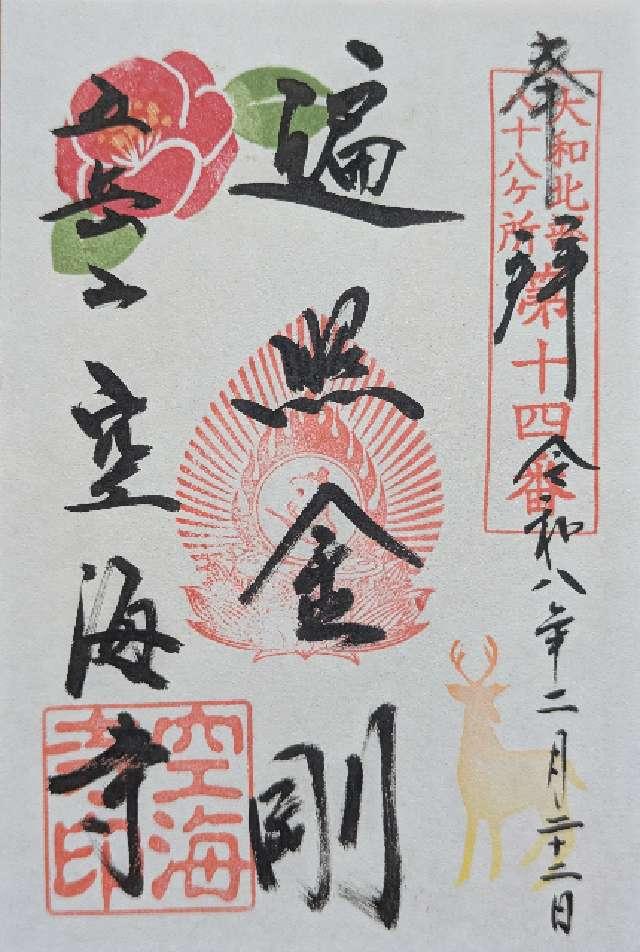 奉拝
大和北部
八十八ヶ所
第十四番
令和八年二月二十二日
遍照金剛
五岳山空海寺
空海
寺印